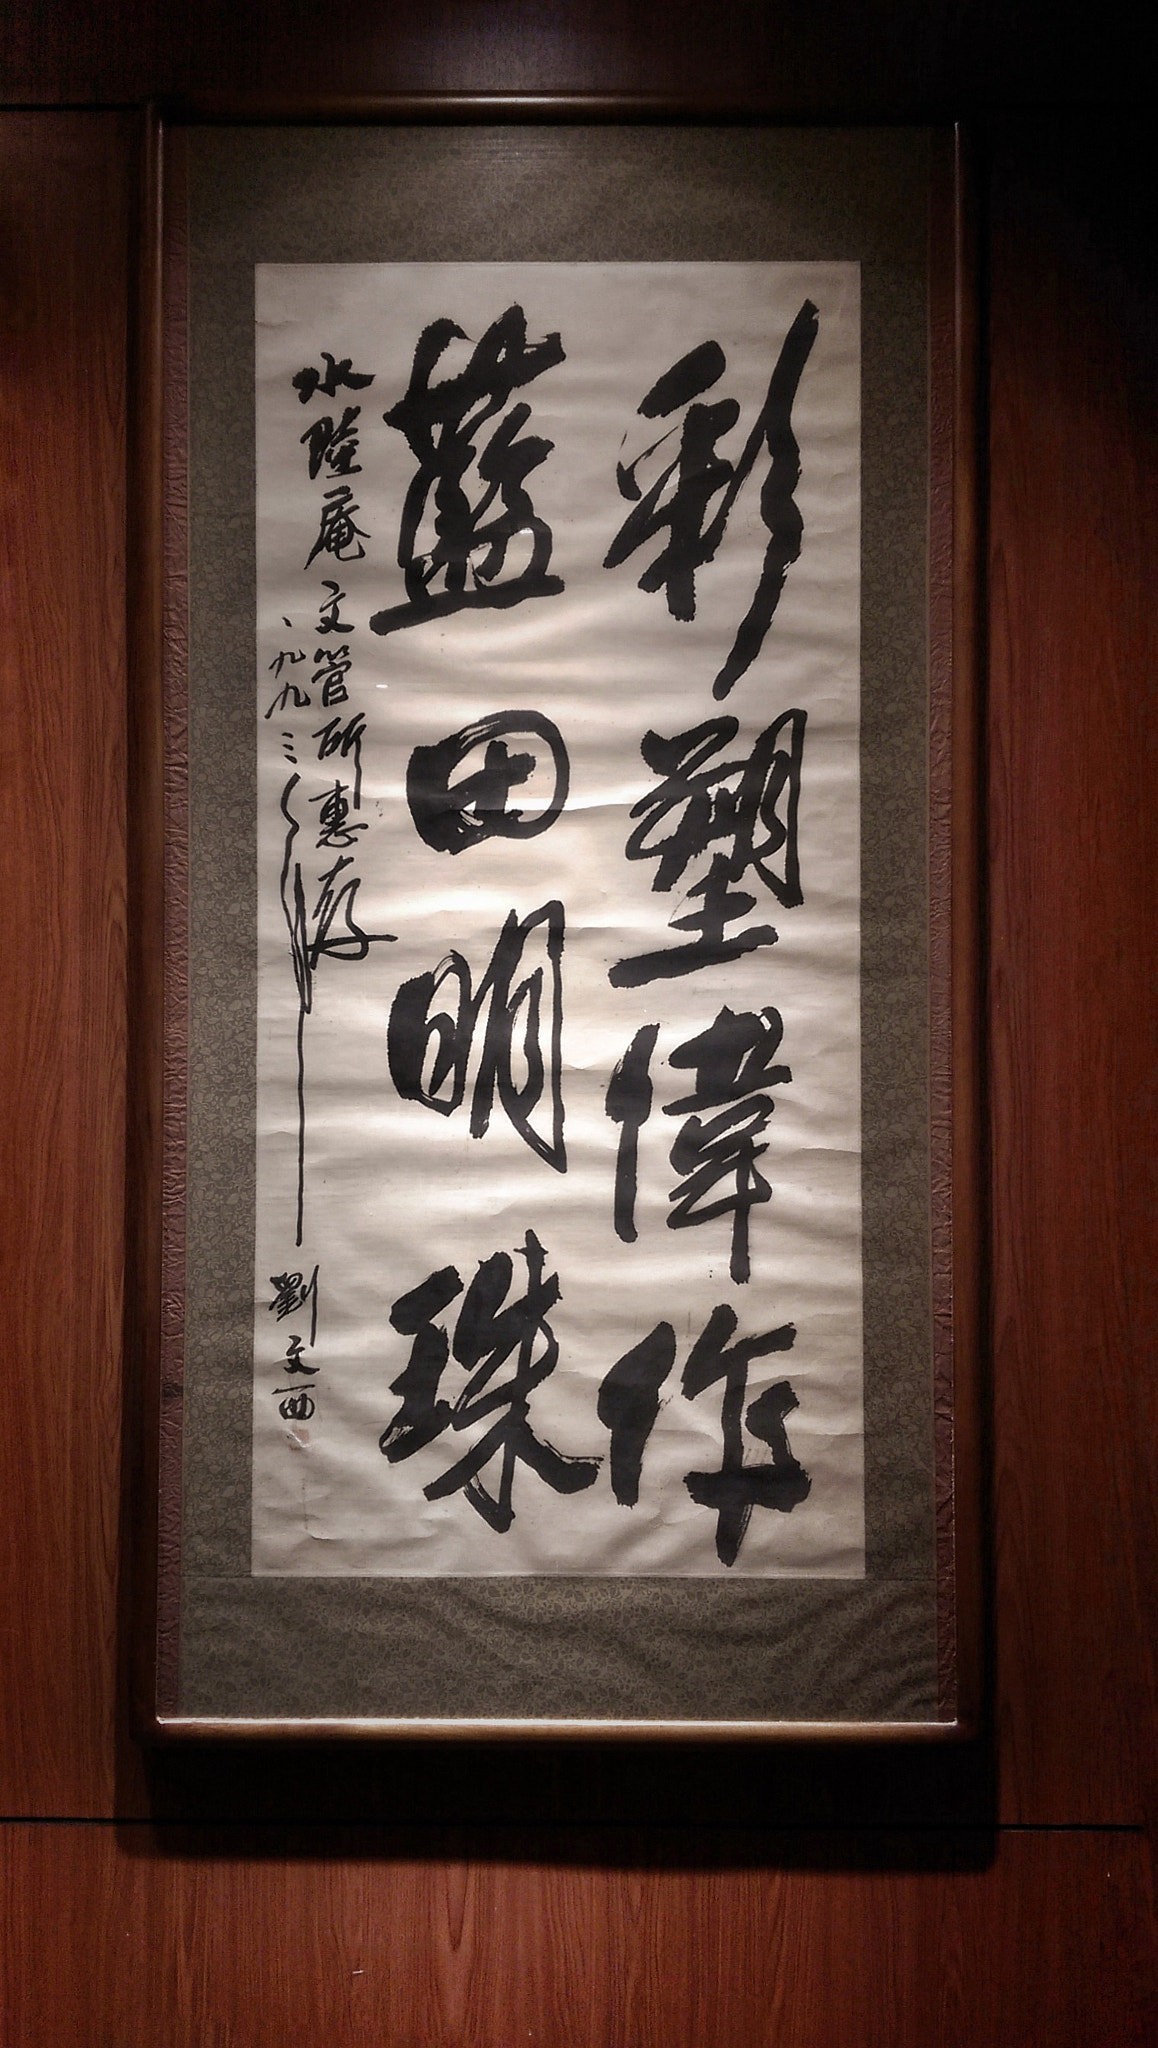 彩塑偉作
藍田明珠
水陸庵文管所惠存
一九九三年
劉文西